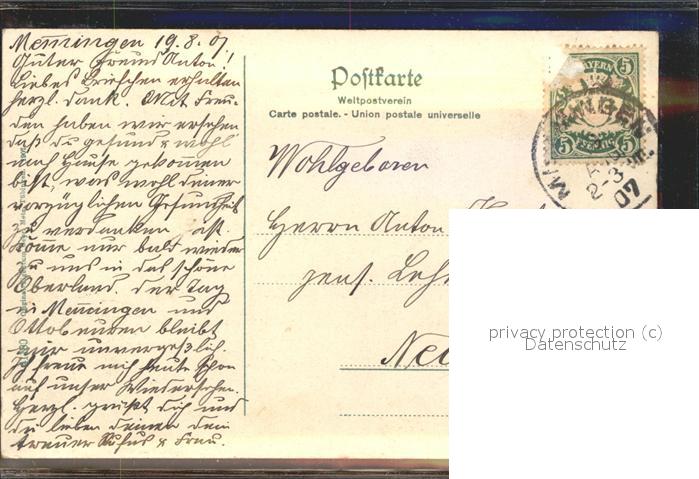 Memmingen 19.8.07.
Guter Freund Anton!
Liebes Briefchen erhalten
herzl. Dank. Mit Freu-
den haben wir ersehen
daß du gesund & wohl
nach Hause gekommen
bist, was wohl deiner
vorzüglichen Gesundheit
zu verdanken ist.
Komme nur bald wieder
zu uns in das schöne
Oberland. Der Tag
in Memmingen und
Ottobeuren bleibt
mir unvergeßlich.
Ich freue mich heute schon
auf unser Wiedersehen.
Herzl. grüßt dich und
die lieben deinen dein
treuer Rufus & Frau.
Postkarte
Weltpostverein
Carte postale. - Union postale universelle
BAYERN
5 5
5 PFENNIG 5
2-3
07
Wohlgeboren
Herrn Anton
pens. Leh
Ne
privacy protection (c)
Datenschutz